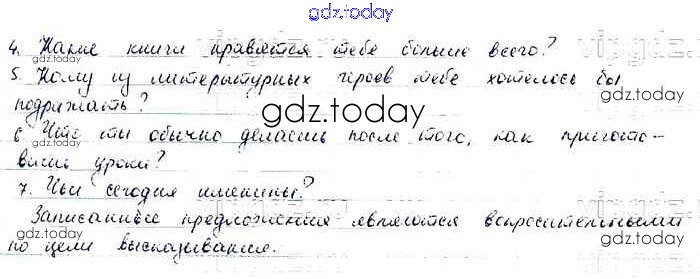 gdz.today
4. Какие книги нравятся тебе больше всего?
5. Кому из литературных героев тебе хотелось бы
подражать?
6 Что ты обычно делаешь после того, как пригото-
вишь уроки?
7. Чьи сегодня именины?
Записанные предложения являются вопросительными
по цели высказывания.
gdz.today
gdz.today
gdz.today
gdz.today
gdz.today
gdz.today